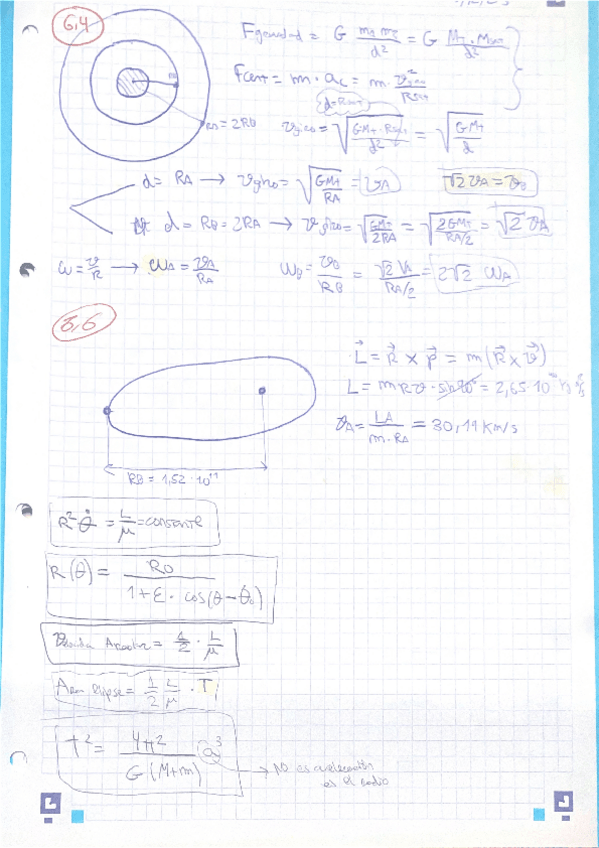 6,4
Fgravedad = G m1 m2 / d² = G MT · Msat / d²
Fcent = m · ac = m · vgiro² / Rsat
d = Rsat
RB = 2RB
vgiro = √(GMT · Rsat / d²) = √(GMT / d)
d = RA → vgiro = √(GMT / RA) = vA
√2 vA = vB
d = RB = 2RA → vgiro = √(GMT / 2RA) = √(2GMT / RA/2) = √2 vA
ω = v/R → ωA = vA / RA
ωB = vB / RB = √2 VA / RA/2 = 2√2 ωA
6,6
L⃗ = R⃗ × p⃗ = m (R⃗ × v⃗)
L = m R v · sin 90° = 2,65 · 10
vA = LA / m · RA = 30,19 km/s
RB = 1,52 · 10¹¹
R² θ̇ = L/μ = constante
R(θ) = R0 / 1 + ε · cos(θ - θ0)
Areolar = 1/2 · L/μ
Area elipse = 1/2 L/μ · T
T² = 4π² / G(M+m) a³
→ No es aceleración
es el radio